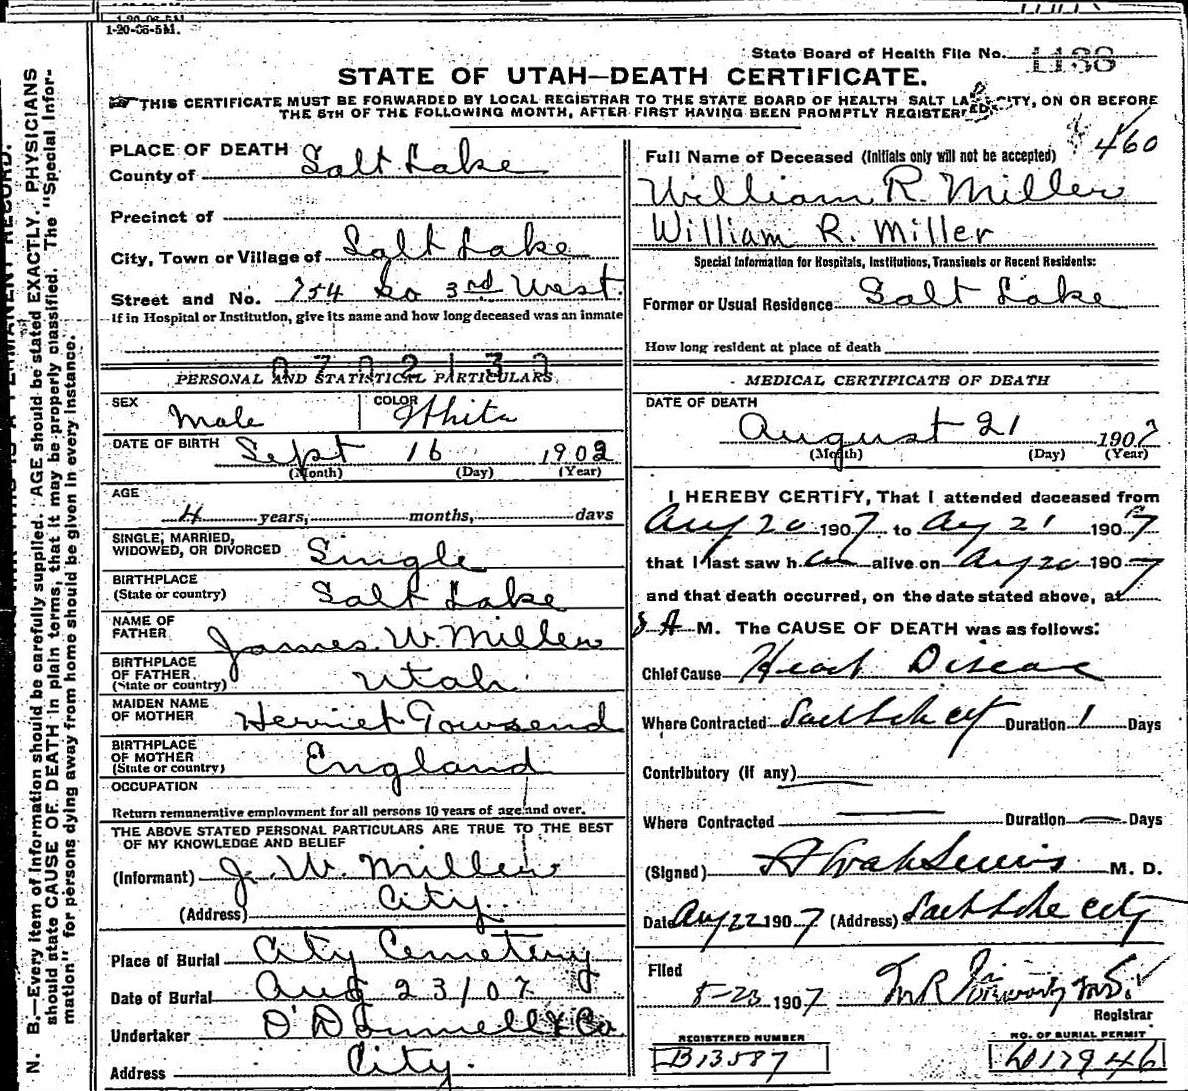 1-20-06-5M.
State Board of Health File No. 1188
STATE OF UTAH—DEATH CERTIFICATE.
THIS CERTIFICATE MUST BE FORWARDED BY LOCAL REGISTRAR TO THE STATE BOARD OF HEALTH SALT LAKE CITY, ON OR BEFORE
THE 5TH OF THE FOLLOWING MONTH, AFTER FIRST HAVING BEEN PROMPTLY REGISTERED.
N. B.—Every item of information should be carefully supplied. AGE should be stated EXACTLY. PHYSICIANS
should state CAUSE OF DEATH in plain terms, that it may be properly classified. The "Special Infor-
mation" for persons dying away from home should be given in every instance.
PLACE OF DEATH
County of Salt Lake
Precinct of
City, Town or Village of Salt Lake
Street and No. 754 So 3rd West.
If in Hospital or Institution, give its name and how long deceased was an inmate
0702132
PERSONAL AND STATISTICAL PARTICULARS
SEX Male COLOR White
DATE OF BIRTH Sept 16 1902
(Month) (Day) (Year)
AGE
4 years, months, days
SINGLE, MARRIED,
WIDOWED, OR DIVORCED Single
BIRTHPLACE
(State or country) Salt Lake
NAME OF
FATHER James W. Miller
BIRTHPLACE
OF FATHER
(State or country) Utah
MAIDEN NAME
OF MOTHER Herriet Townsend
BIRTHPLACE
OF MOTHER
(State or country) England
OCCUPATION
Return remunerative employment for all persons 10 years of age and over.
THE ABOVE STATED PERSONAL PARTICULARS ARE TRUE TO THE BEST
OF MY KNOWLEDGE AND BELIEF
(Informant) J. W. Miller
(Address) City
Place of Burial City Cemetery
Date of Burial Aug 23/07
Undertaker O'Donnell & Co
Address City.
460
Full Name of Deceased (Initials only will not be accepted)
William R. Miller
William R. Miller
Special Information for Hospitals, Institutions, Transients or Recent Residents:
Former or Usual Residence Salt Lake
How long resident at place of death
MEDICAL CERTIFICATE OF DEATH
DATE OF DEATH
August 21 1907
(Month) (Day) (Year)
I HEREBY CERTIFY, That I attended deceased from
Aug 20 1907 to Aug 21 1907
that I last saw h alive on Aug 20 1907
and that death occurred, on the date stated above, at
8 A M. The CAUSE OF DEATH was as follows:
Chief Cause Heart Disease
Where Contracted Salt Lake City Duration 1 Days
Contributory (if any)
Where Contracted Duration Days
(Signed) M. D.
Date Aug 22 1907 (Address) Salt Lake City
Filed
8-23 1907
Registrar
REGISTERED NUMBER
B13587
NO. OF BURIAL PERMIT
D17946